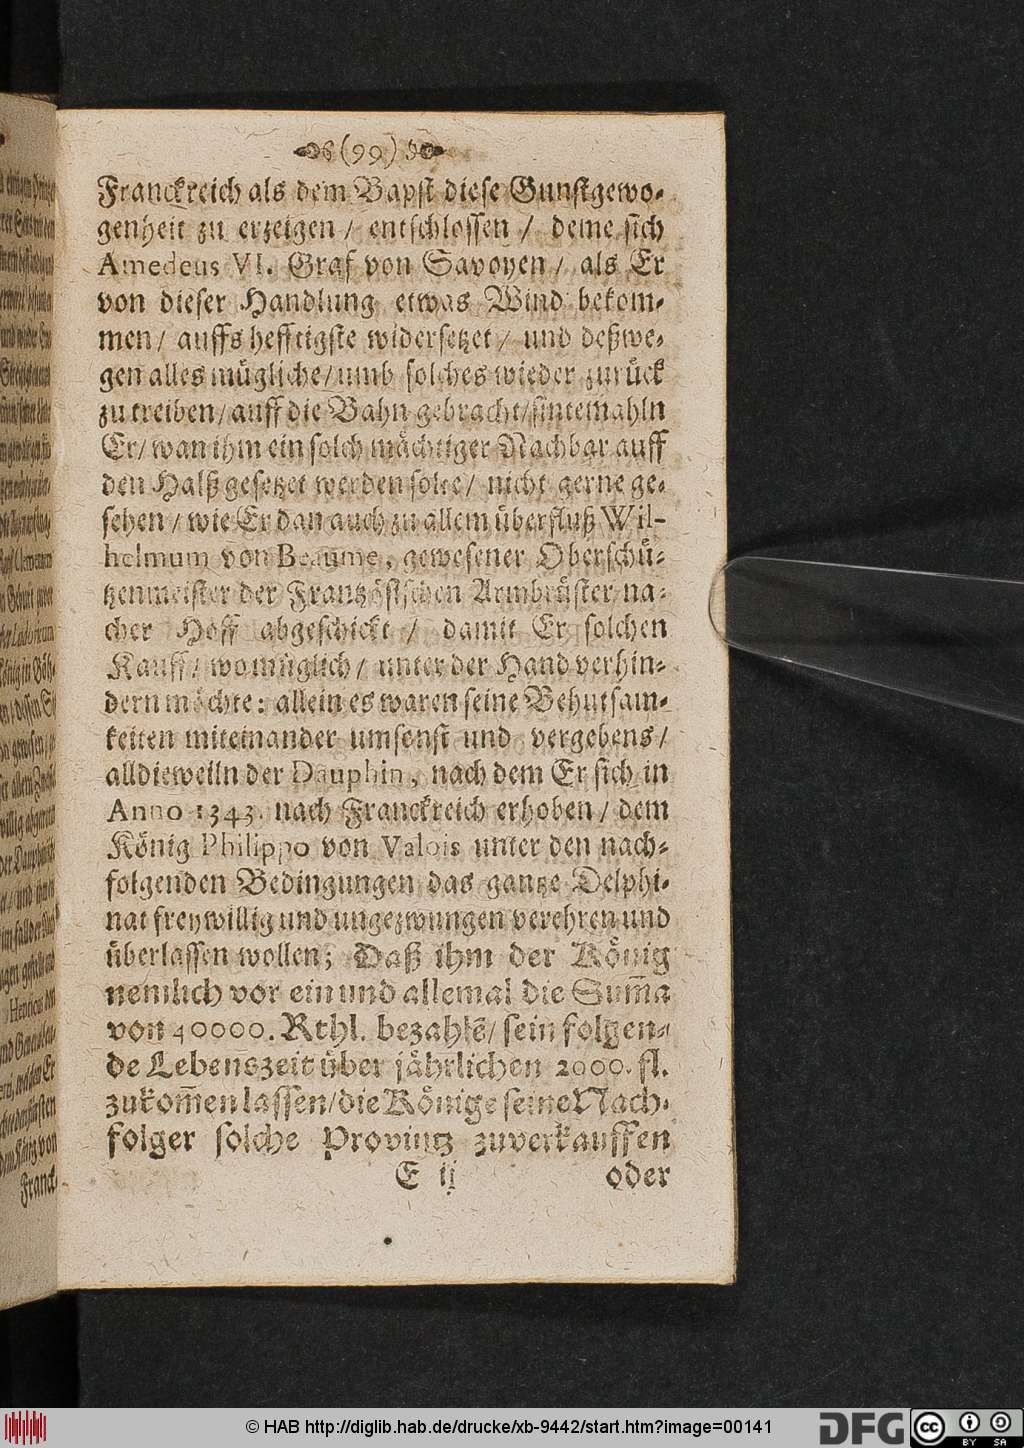 (99)
Franckreich als dem Bapst diese Gunstgewo-
genheit zu erzeigen / entschlossen / deme sich
Amedeus VI. Graf von Savoyen / als Er
von dieser Handlung etwas Wind bekom-
men / auffs hefftigste widersetzet / und deßwe-
gen alles mügliche / umb solches wieder zurück
zu treiben / auff die Bahn gebracht / sintemahln
Er / wan ihm ein solch mächtiger Nachbar auff
den Halß gesetzet werden solte / nicht gerne ge-
sehen / wie Er dan auch zu allem überfluß Wil-
helmum von Beaume, gewesener Oberschü-
tzenmeister der Frantzösischen Armbrüster na-
cher Hoff abgeschickt / damit Er solchen
Kauff / wo müglich / unter der Hand verhin-
dern möchte: allein es waren seine Behutsam-
keiten miteinander umsonst und vergebens /
alldieweiln der Dauphin, nach dem Er sich in
Anno 1343. nach Franckreich erhoben / dem
König Philippo von Valois unter den nach-
folgenden Bedingungen das gantze Delphi-
nat freywillig und ungezwungen verehren und
überlassen wollen; Daß ihm der König
nemlich vor ein und allemal die Sum̃a
von 40000. Rthl. bezahlẽ / sein folgen-
de Lebenszeit über jährlichen 2000. fl.
zukom̃en lassen / die Könige seine Nach-
folger solche Provintz zuverkauffen
E ij oder
© HAB http://diglib.hab.de/drucke/xb-9442/start.htm?image=00141
DFG
cc BY SA